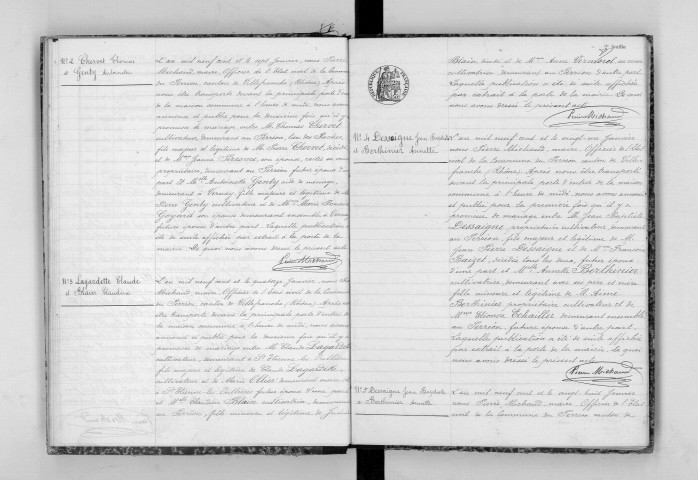 N° 2 Chervet Thomas
et Genty Antoinette
L'an mil neuf cent et le sept Janvier, nous Pierre
Michaud, maire, Officier de l'Etat civil de la Commune
du Perréon, canton de Villefranche (Rhône) Après
nous être transporté devant la principale porte d'entrée
de la maison commune à l'heure de midi, nous avons
annoncé et publié pour la première fois qu'il y a
promesse de mariage entre M. Thomas Chervet
cultivateur, demeurant au Perréon, lieu des
fils majeur et légitime de M. Pierre Chervet, décédé
et de Mme Jeanne son épouse,
propriétaire, demeurant au Perréon futur époux d'une
part Et Mlle Antoinette Genty aide de ménage,
demeurant à Vernay fille majeure et légitime de
Pierre Genty cultivateur et de Mme Marie
Goyard son épouse demeurant ensemble à Vernay
future épouse d'autre part. Laquelle publication a
été de suite affichée par extrait à la porte de la
mairie. De quoi nous avons dressé le présent acte
Pierre Michaud
N° 3 Lagardette Claude
et Blain Claudine
L'an mil neuf cent et le quatorze Janvier, nous Pierre
Michaud, maire, Officier de l'Etat civil de la Commune
du Perréon, canton de Villefranche, (Rhône) Après nous
être transporté devant la principale porte d'entrée de
la maison commune à l'heure de midi, nous avons
annoncé et publié pour la première fois qu'il y a
promesse de mariage entre M. Claude Lagardette
cultivateur, demeurant à St Etienne la
fils majeur et légitime de Claude Lagardette
cultivateur et de Marie demeurant
à St Etienne la futur époux d'une part
et Mlle Claudine Blain cultivatrice, demeurant au
Perréon, fille mineure et légitime de
feuillet
Blain et de Mme Anne
cultivatrice, demeurant au Perréon d'autre part.
Laquelle publication a été de suite affichée
par extrait à la porte de la mairie. De quoi
nous avons dressé le présent acte
Pierre Michaud
N° 4 Dessaigne Jean Baptiste
et Berthinier Annette
L'an mil neuf cent et le vingt un Janvier
nous Pierre Michaud, maire, Officier de l'Etat
civil de la Commune du Perréon canton de Ville-
franche (Rhône) Après nous être transporté
devant la principale porte d'entrée de la maison
commune à l'heure de midi, nous avons annoncé
et publié pour la première fois qu'il y a
promesse de mariage entre M. Jean Baptiste
Dessaigne propriétaire cultivateur demeurant
au Perréon, fils majeur et légitime de M.
Jean Pierre Dessaigne et de Mme Françoise
décédés tous les deux, futur époux
d'une part et Mlle Annette Berthinier
cultivatrice, demeurant avec ses père et mère
fille mineure et légitime de M. Aimé
Berthinier propriétaire cultivateur et de
Mme Echallier demeurant ensemble
au Perréon future épouse d'autre part.
Laquelle publication a été de suite affichée
par extrait à la porte de la mairie, de quoi
nous avons dressé le présent acte
Pierre Michaud
N° 5 Dessaigne Jean Baptiste
et Berthinier Annette
L'an mil neuf cent et le vingt huit Janvier
nous Pierre Michaud, maire, Officier de l'Etat
civil de la Commune du Perréon canton de